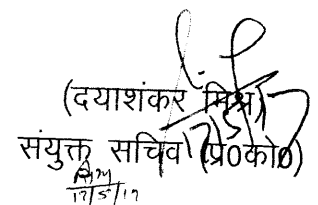 (दयाशंकर मिश्र)
संयुक्त सचिव (प्र0को0)
17/5/17